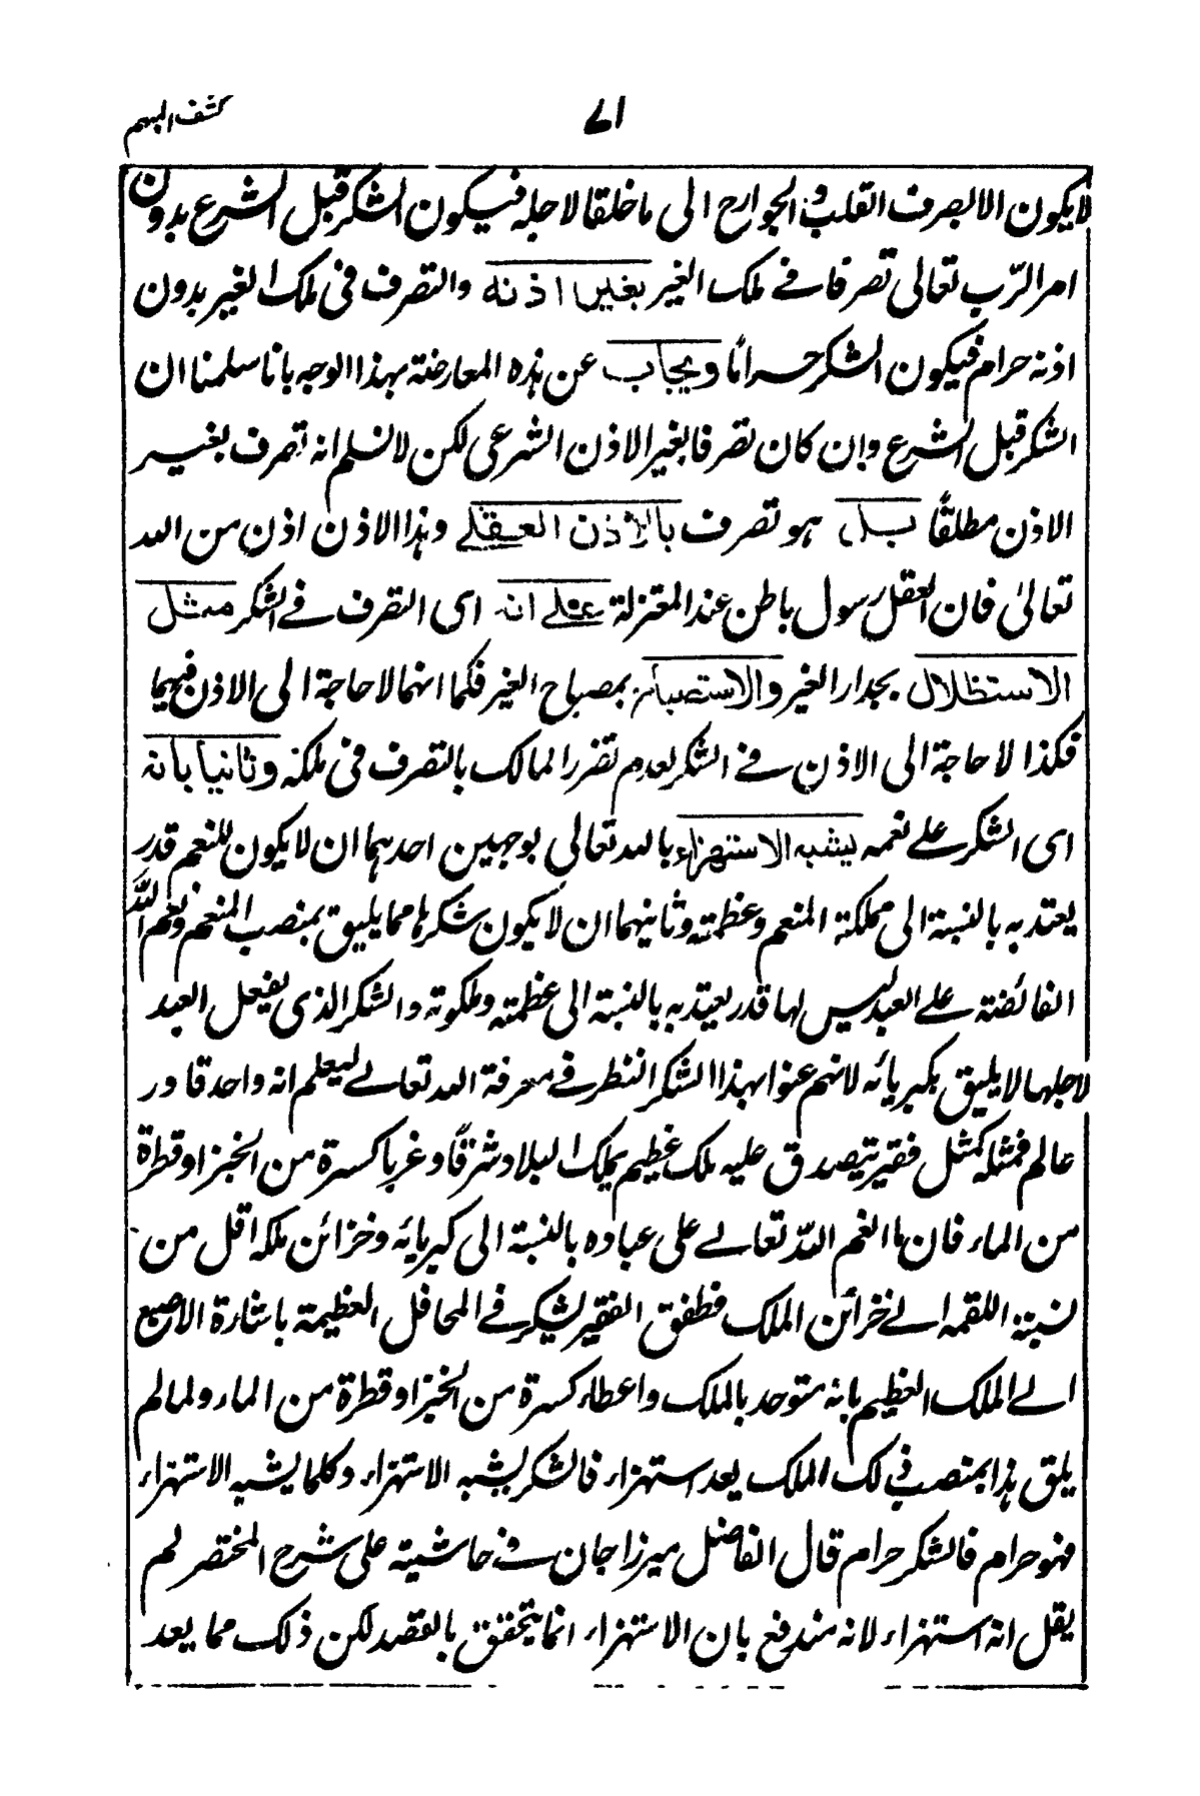 ٧١ كشف المبهم
لا يكون الا بصرف القلب والجوارح الى ما خلقا لاجله فيكون الشكر قبل الشرع بدون
امر الرّب تعالى تصرفا فے ملك الغير بغير اذنه والتصرف فى ملك الغير بدون
اذنه حرام فيكون الشكر حرامًا ويجاب عن هذه المعارضة بهذا الوجه بانا سلمنا ان
الشكر قبل الشرع وان كان تصرفا بغير الاذن الشرعى لكن لا نسلم انه تصرف بغير
الاذن مطلقًا بل هو تصرف بالاذن العقلے وهذا الاذن اذن من الله
تعالىٰ فان العقل رسول باطن عند المعتزلة علے انه اى التصرف فے الشكر مثل
الاستظلال بجدار الغير والاستصباح بمصباح الغير فكما انهما لا حاجة الى الاذن فيهما
فكذا لا حاجة الى الاذن فے الشكر لعدم تضرر المالك بالتصرف فى ملكه وثانيا بانه
اى الشكر علے نعمه يشبه الاستهزاء بالله تعالى بوجهين احدهما ان لا يكون للنعم قدر
يعتد به بالنسبة الى مملكة المنعم وعظمته وثانيهما ان لا يكون شكرها مما يليق بمنصب المنعم ونعم اللّٰه
الفائضة علے العبد ليس لها قدر يعتد به بالنسبة الى عظمته وملكوته والشكر الذى يفعل العبد
لاجلها لا يليق بكبريائه لانهم عنوا بهذا الشكر النظر فے معرفة الله تعالے ليعلم انه واحد قادر
عالم فمثله كمثل فقير تيصدق عليه ملك عظيم يملك البلاد شرقًا وغربا كسرة من الخبز او قطرة
من الماء فان ما انعم اللّه تعالے على عباده بالنسبة الى كبريائه وخزائن ملكه اقل من
نسبة اللقمة الے خزائن الملك فطفق الفقير يشكر فے المحافل العظيمة باشارة الاصبع
الے الملك العظيم بانه متوحد بالملك واعطاء كسرة من الخبز او قطرة من الماء ولما لم
يلق هذا بمنصب ذلك الملك يعد استهزاء فالشكر يشبه الاستهزاء وكلما يشبه الاستهزاء
فهو حرام فالشكر حرام قال الفاضل ميرزا جان فے حاشيته على شرح المختصر لم
يقل انه استهزاء لانه مندفع بان الاستهزاء انما يتحقق بالقصد لكن ذلك مما يعد